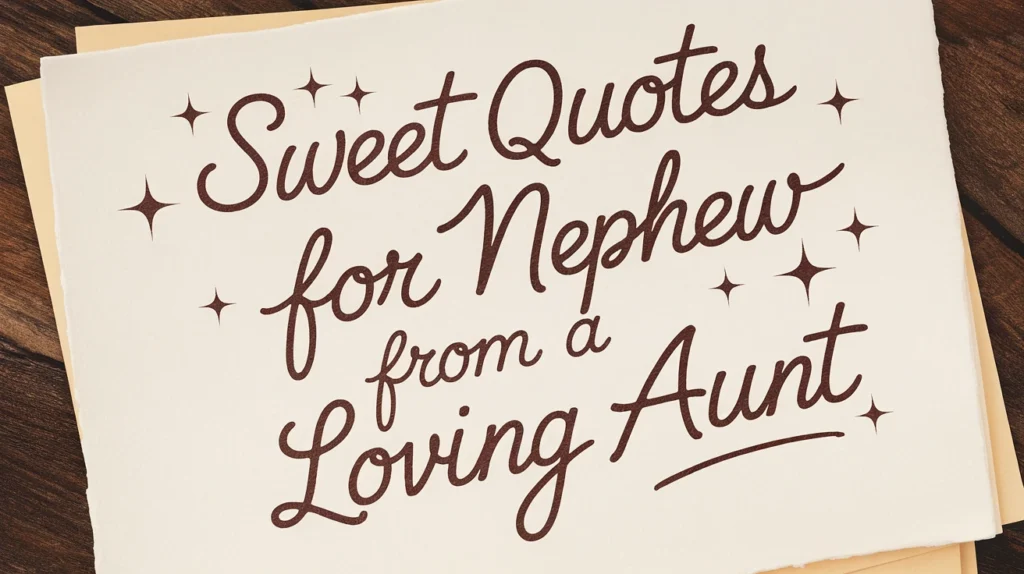 Sweet Quotes
for Nephew
from a
Loving Aunt